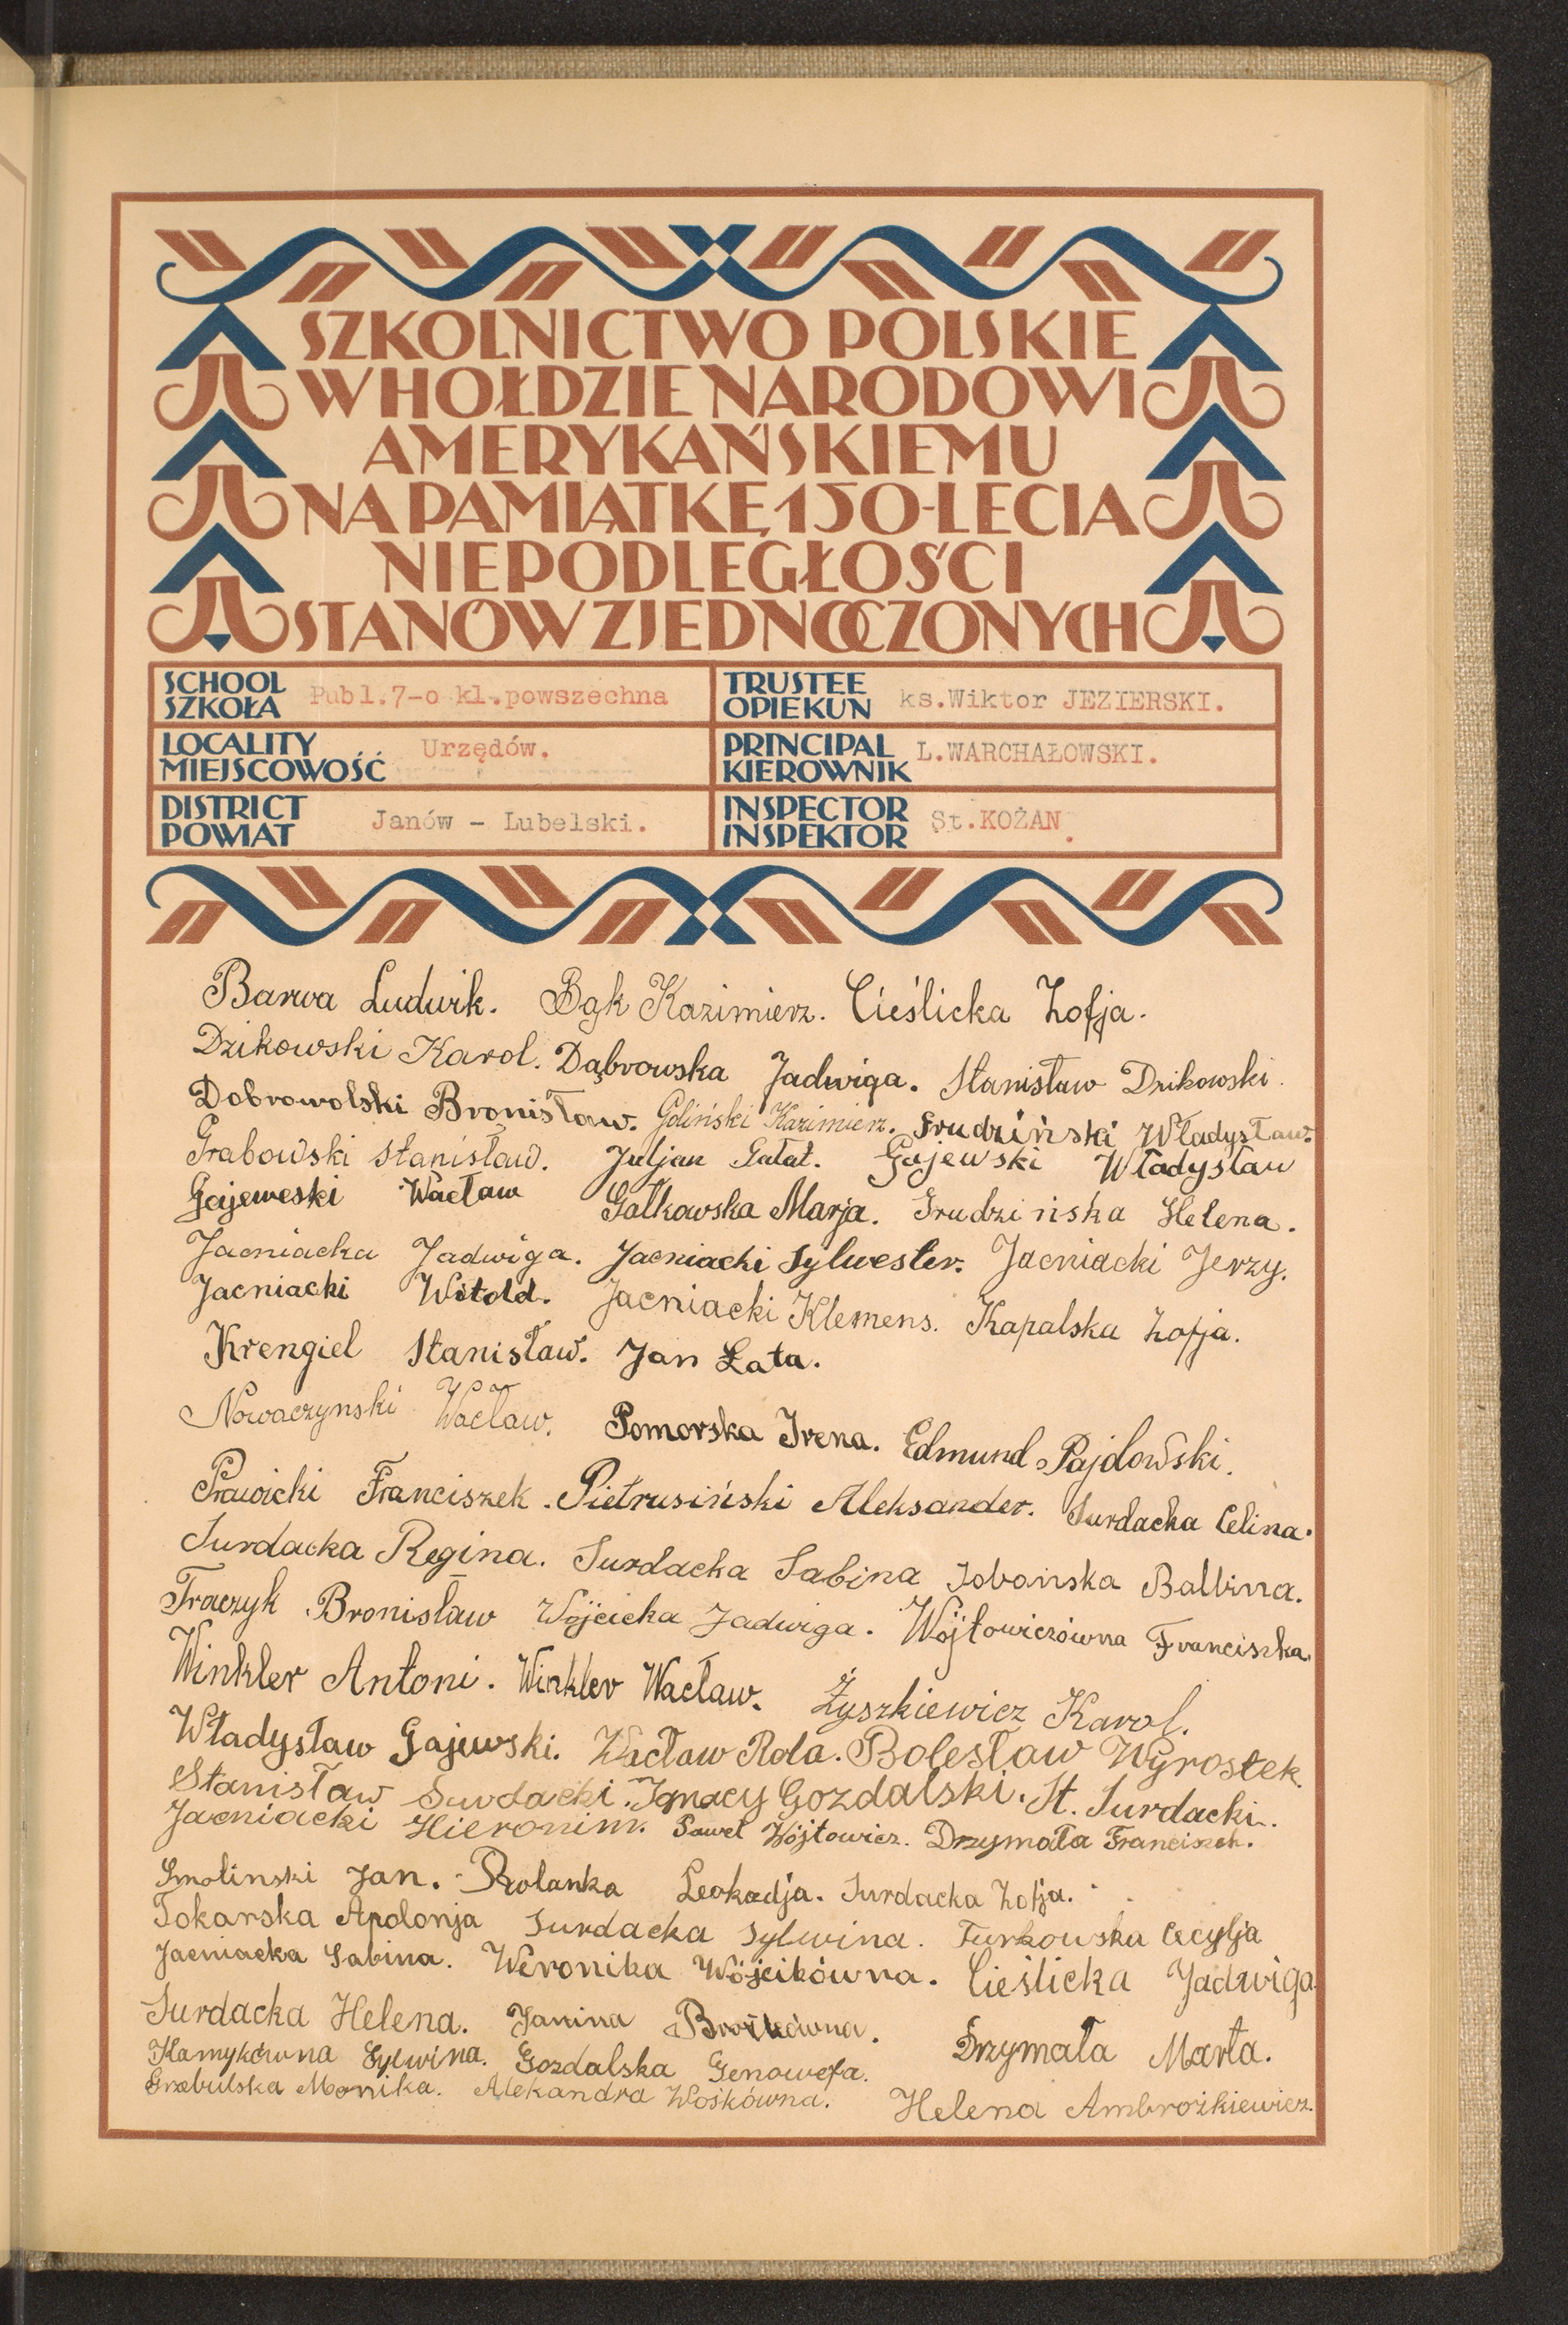 SZKOLNICTWO POLSKIE
W HOŁDZIE NARODOWI
AMERYKAŃSKIEMU
NA PAMIĄTKĘ 150-LECIA
NIEPODLEGŁOŚCI
STANÓW ZJEDNOCZONYCH
SCHOOL
SZKOŁA
Publ.7-o kl.powszechna
TRUSTEE
OPIEKUN
ks.Wiktor JEZIERSKI.
LOCALITY
MIEJSCOWOŚĆ
Urzędów.
PRINCIPAL
KIEROWNIK
L.WARCHAŁOWSKI.
DISTRICT
POWIAT
Janów - Lubelski.
INSPECTOR
INSPEKTOR
St.KOŻAN.
Barwa Ludwik. Bąk Kazimierz. Cieślicka Zofja.
Dzikowski Karol. Dąbrowska Jadwiga. Stanisław Dzikowski.
Dobrowolski Bronisław. Goliński Kazimierz. Grudziński Władysław.
Grabowski Stanisław. Juljan Gałat. Gajewski Władysław
Gajeweski Wacław Gałkowska Marja. Grudzińska Helena.
Jacniacka Jadwiga. Jacniacki Sylwester. Jacniacki Jerzy.
Jacniacki Witold. Jacniacki Klemens. Kapalska Zofja.
Krengiel Stanisław. Jan Łata.
Nowaczynski Wacław. Pomorska Irena. Edmund Pajdowski.
Prawicki Franciszek. Pietrusiński Aleksander. Surdacka Celina.
Surdacka Regina. Surdacka Sabina Balbina.
Traczyk Bronisław Wójcicka Jadwiga. Wójtowiczówna Franciszka.
Winkler Antoni. Winkler Wacław. Żyszkiewicz Karol.
Władysław Gajewski. Wacław Rola. Bolesław Wyrostek.
Stanisław Surdacki. Ignacy Gozdalski. St. Surdacki.
Jacniacki Hieronim. Paweł Wójtowicz. Drzymała Franciszek.
Smolinski Jan. Rolanka Leokadja. Surdacka Zofja.
Tokarska Apolonja Surdacka Sylwina. Turkowska Cecylja
Jacniacka Sabina. Weronika Wójcikówna. Cieślicka Jadwiga.
Surdacka Helena. Janina Drzymała Marta.
Kamykówna Sylwina. Gozdalska Genowefa.
Grabulska Monika. Alekandra Wośkówna. Helena Ambrożkiewicz.